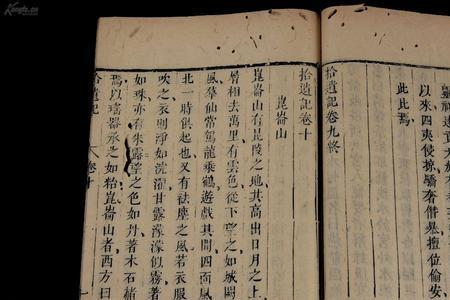 以來四夷侵掠驕奢僭暴擅位偷安
此此焉
拾遺記卷九終
拾遺記卷十
崑崙山
崑崙山有昆陵之地其高出日月之上
層相去萬里有雲色從下望之如城闕
風羣仙常駕龍乘鶴遊戲其間四面風
北一時俱起也又有祛塵之風若衣服
吹之衣則淨如浣濯甘露濛濛似霧
如珠亦有朱露望之色如丹著木石赭
焉以瑤器承之如飴崑崙山者西方曰
拾遺記 卷十
Kongfz.cn